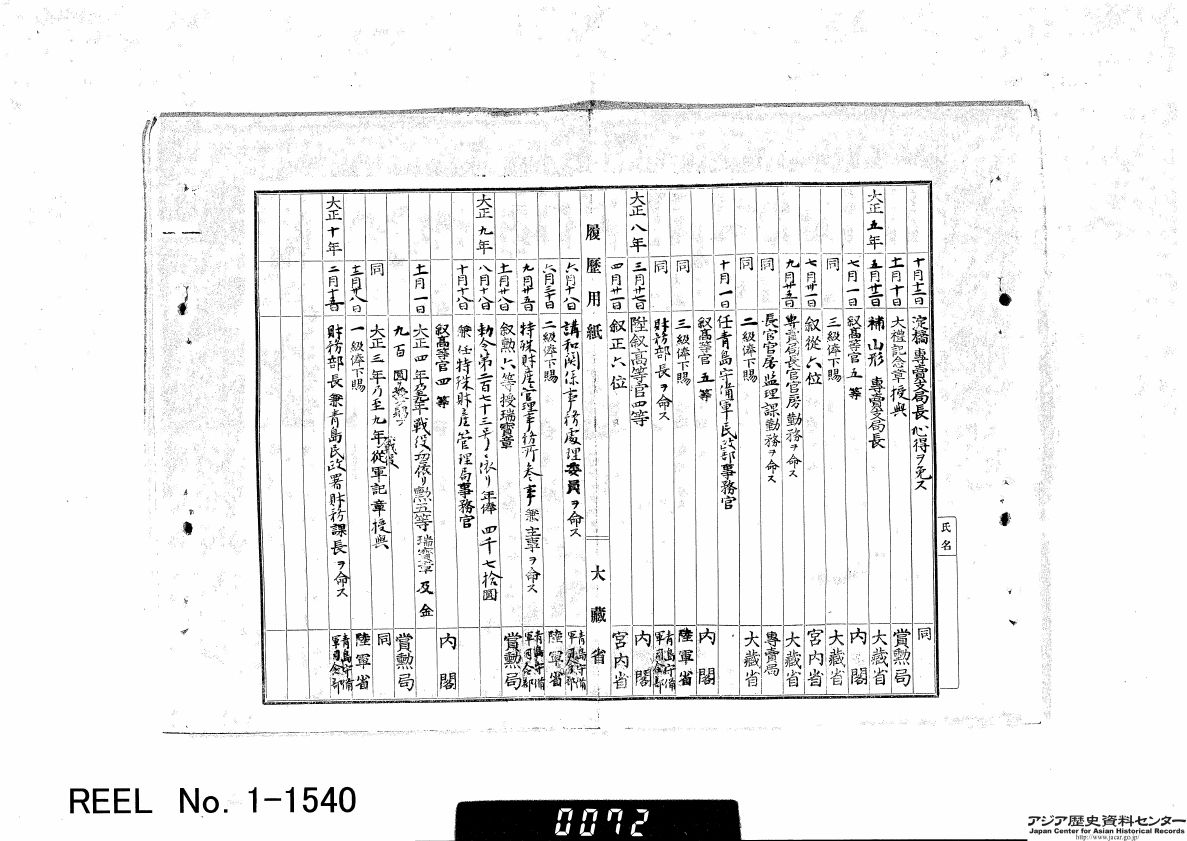 十月十二日 淀橋專賣支局長心得ヲ免ス 同
十一月十日 大禮記念章授與 賞勲局
大正五年 五月廿二日 補山形專賣支局長 大藏省
七月一日 叙高等官五等 内閣
同 三級俸下賜 大藏省
七月廿一日 叙從六位 宮内省
九月廿五日 專賣局長官官房勤務ヲ命ス 大藏省
同 長官官房監理課勤務ヲ命ス 專賣局
同 二級俸下賜 大藏省
十月一日 任青島守備軍民政部事務官
叙高等官五等 内閣
同 三級俸下賜 陸軍省
同 財務部長ヲ命ス 青島守備軍司令部
大正八年 三月廿七日 陞叙高等官四等 内閣
四月廿一日 叙正六位 宮内省
履歴用紙 大藏省
六月十八日 講和関係事務處理委員ヲ命ス 青島守備軍司令部
六月三十日 二級俸下賜 陸軍省
九月廿五日 特殊財産管理事務所参事兼主事ヲ命ス 青島守備軍司令部
十一月廿八日 叙勲六等授瑞寶章 賞勲局
大正九年 八月十八日 勅令第二百七十三号ニ依リ年俸四千七拾圓
十月十八日 兼任特殊財産管理局事務官
叙高等官四等 内閣
十一月一日 大正四年乃至九年戰役功依リ勲五等瑞寶章及金
九百圓 賞勲局
同 大正三年乃至九年戰役從軍記章授與 同
十二月廿八日 一級俸下賜 陸軍省
大正十年 二月十五日 財務部長兼青島民政署財務課長ヲ命ス 青島守備軍司令部
氏名
REEL No. 1-1540
0072
アジア歴史資料センター
Japan Center for Asian Historical Records
http://www.jacar.go.jp/